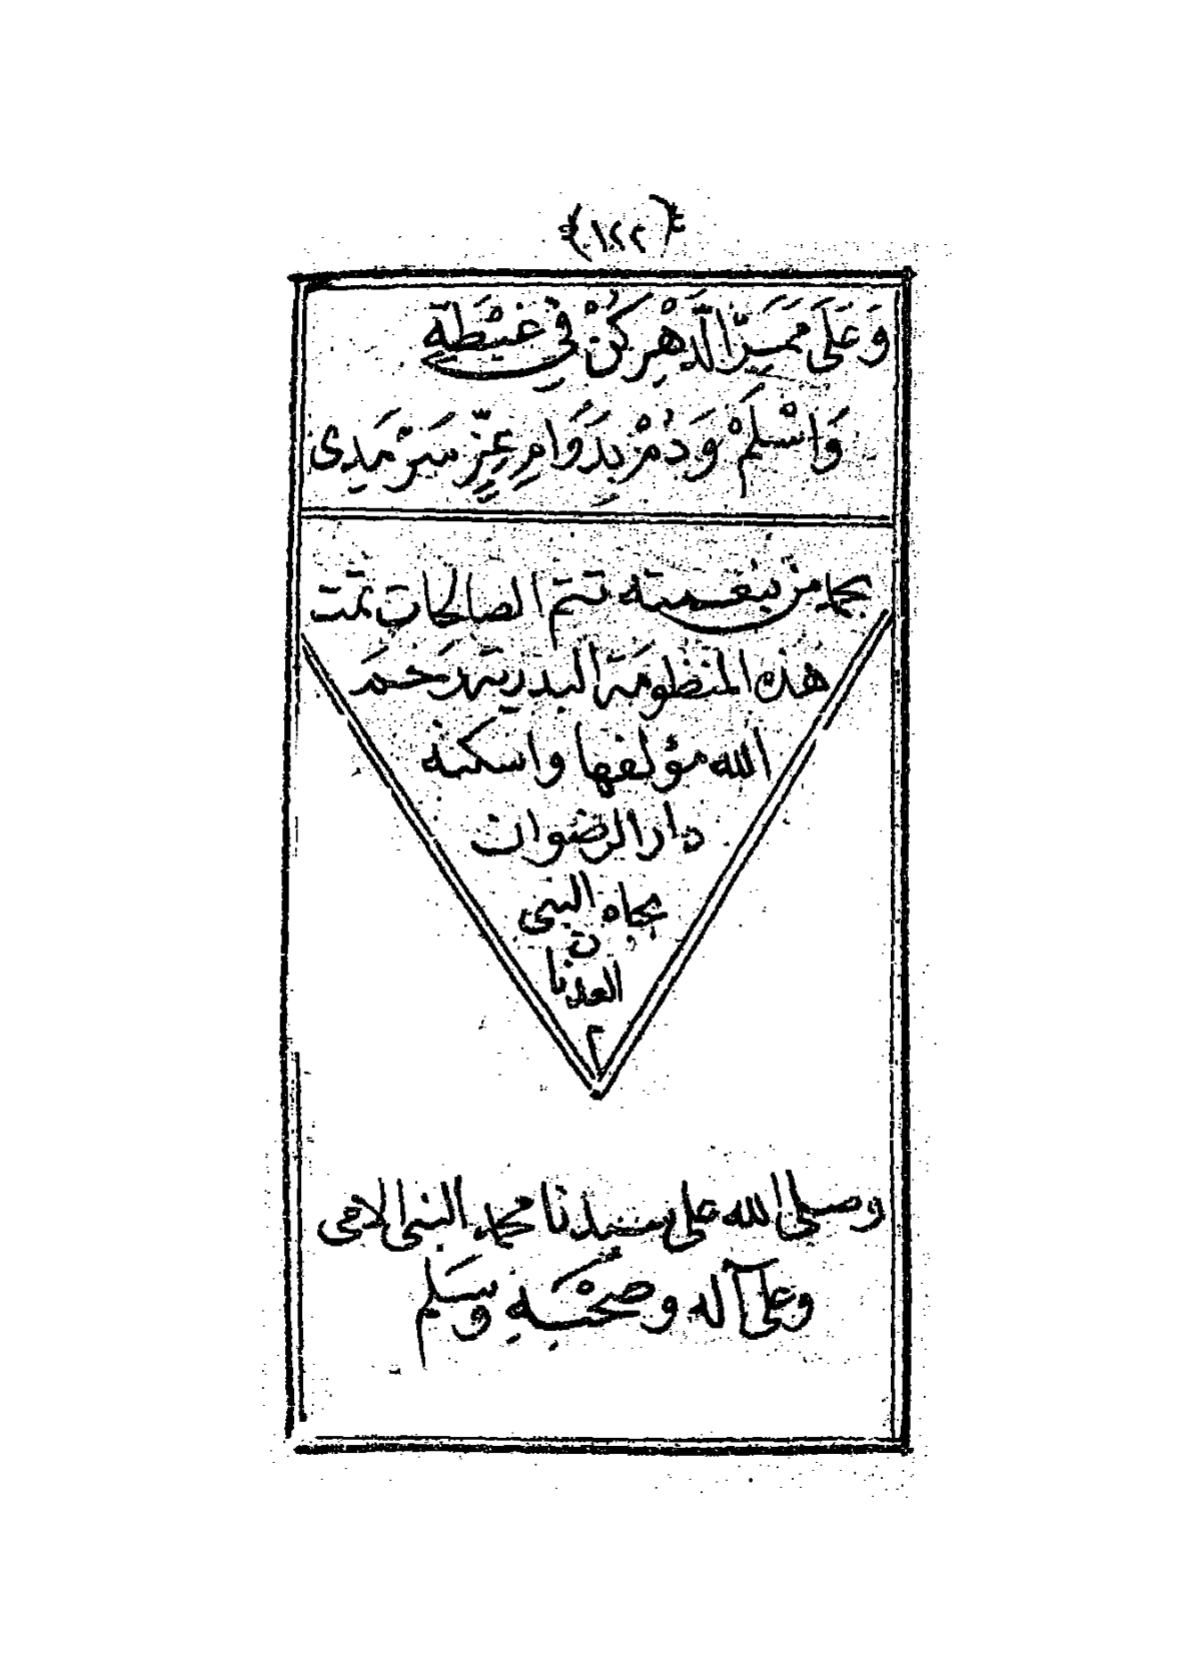 ﴿١٢٢﴾
وَعَلَى مَمَرِّ الدَّهْرِ كُنْ فِي غَيْطَةٍ
وَاسْلَمْ وَدُمْ بِدَوَامِ عِزٍّ سَرْمَدِى
بحمد من بنعمته تتم الصالحات تمت
هذه المنظومة البدرية رَحمَ
الله مؤلفها واسكنه
دار الرضوان
بجاه النبى
العدنا
ن
م
وصلى الله على سيدنا محمد النبى الامى
وعلى آله وصَحْبِهِ وسَلم